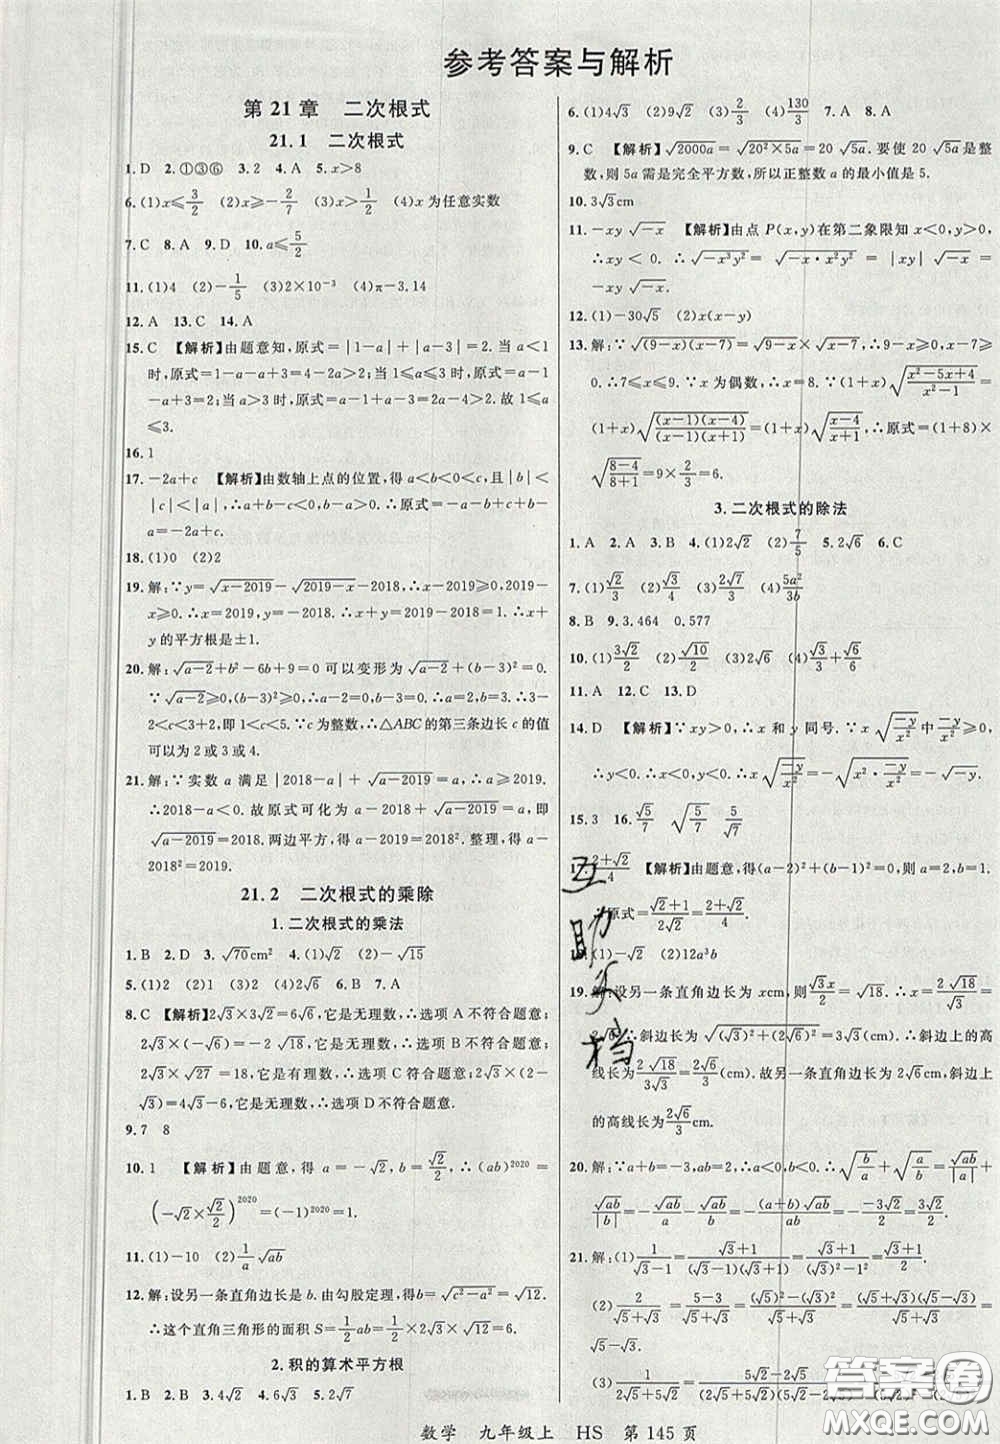 参考答案与解析
第 21 章　二次根式
21.1　二次根式
1. D　2. ①③⑥　3. 2　4. A　5. x>8
6. (1)x≤3/2　(2)x≥-2/7　(3)x>1/2　(4)x 为任意实数
7. C　8. A　9. D　10. a≤5/2
11. (1)4　(2)-1/5　(3)2×10⁻³　(4)π-3.14
12. A　13. C　14. A
15. C　【解析】由题意知，原式=|1-a|+|a-3|=2. 当 a<1
时，原式=1-a+3-a=4-2a>2；当 1≤a≤3 时，原式=a-1
-a+3=2；当 a>3 时，原式=a-1+a-3=2a-4>2. 故 1≤a
≤3.
16. 1
17. -2a+c　【解析】由数轴上点的位置，得 a<b<0<c，且|b|<
|c|<|a|，∴a+b-c<0，b-a>0，∴原式=-a-b+c+b-a
=-2a+c.
18. (1)0　(2)2
19. 解：∵y=√(x-2019)-√(2019-x)-2018，∴x-2019≥0，2019-
x≥0. ∴x=2019，y=-2018. ∴x+y=2019-2018=1. ∴x+
y 的平方根是±1.
20. 解：√(a-2)+b²-6b+9=0 可以变形为√(a-2)+(b-3)²=0.
∵√(a-2)≥0，(b-3)²≥0，∴a-2=0，b-3=0. ∴a=2，b=3. ∴3-
2<c<3+2，即 1<c<5. ∵c 为整数，∴△ABC 的第三条边长 c 的值
可以为 2 或 3 或 4.
21. 解：∵实数 a 满足|2018-a|+√(a-2019)=a，∴a≥2019.
∴2018-a<0. 故原式可化为 a-2018+√(a-2019)=a，即
√(a-2019)=2018. 两边平方，得 a-2019=2018². 整理，得 a-
2018²=2019.
21.2　二次根式的乘除
1. 二次根式的乘法
1. B　2. D　3. √70 cm²　4. (1)√2　(2)-√15
5. (1)2　(2)1　(3)2　(4)√2　6. B　7. A
8. C　【解析】2√3×3√2=6√6，它是无理数，∴选项 A 不符合题意；
2√3×(-√6)=-2√18，它是无理数，∴选项 B 不符合题意；
2√3×√27=18，它是有理数，∴选项 C 符合题意；2√3×(2-
√3)=4√3-6，它是无理数，∴选项 D 不符合题意.
9. 7　8
10. 1　【解析】由题意，得 a=-√2，b=√2/2，∴(ab)²⁰²⁰=
(-√2×√2/2)²⁰²⁰=(-1)²⁰²⁰=1.
11. (1)-10　(2)1/a √ab
12. 解：设另一条直角边长是 b. 由勾股定理，得 b=√(c²-a²)=√12，
∴这个直角三角形的面积 S=1/2ab=1/2×2√3×√12=6.
2. 积的算术平方根
1. B　2. B　3. 4√2　4. 6√3　5. 2√7
6. (1)4√3　(2)9√2　(3)2/3　(4)130/3　7. A　8. A
9. C　【解析】√2000a=√(20²×5a)=20√5a. 要使 20√5a是整
数，则 5a 需是完全平方数，所以正整数 a 的最小值是 5.
10. 3√3 cm
11. -xy√-x　【解析】由点 P(x,y)在第二象限知 x<0，y>0，
∴xy<0. ∴√(-x³y²)=√(-x·x²y²)=|xy|√-x=
-xy√-x.
12. (1)-30√5　(2)x(x-y)
13. 解：∵√((9-x)(x-7))=√(9-x)×√(x-7)，∴9-x≥0，x-7≥
0. ∴7≤x≤9. ∵x 为偶数，∴x=8. ∵(1+x)√((x²-5x+4)/(x²-1))=
(1+x)√((x-1)(x-4)/((x-1)(x+1)))=(1+x)√((x-4)/(x+1))，∴原式=(1+8)×
√((8-4)/(8+1))=9×2/3=6.
3. 二次根式的除法
1. A　2. A　3. B　4. (1)2√2　(2)7/5　5. 2√6　6. C
7. (1)√2/3　(2)√3/4　(3)2√7/3　(4)5a²/3b
8. B　9. 3.464　0.577
10. (1)3√2/2　(2)√10/2　(3)2√6　(4)√3/3+√6
11. A　12. C　13. D
14. D　【解析】∵xy>0，∴x 和 y 同号. ∵x√(-y/x²)中-y/x²≥0，
∴y<0. ∴x<0，y<0. ∴x√(-y/x²)=-√(x²·-y/x²)=-√-y.
15. 3　16. √5/7　√(5/7)　5/√7
(2+√2)/4　【解析】由题意，得(a-2)²+(b-1)²=0，则 a=2，b=1.
原式=(√2+1)/2√2=(2+√2)/4.
(1)-√2　(2)12a³b
19. 解：设另一条直角边长为 x cm，则√3x/2=√18. ∴x=2√18/√3=
2√6. ∴斜边长为√((√3)²+(2√6)²)=3√3(cm). ∴斜边上的高
线长为2√18/3√3=2√6/3(cm). 故另一条直角边长为 2√6 cm，斜边上
的高线长为2√6/3 cm.
20. 解：∵a+b=-3，ab=2，∴a<0，b<0. ∴√(b/a)+√(a/b)=√ab/|a|+
√ab/|b|=-√ab/a-√ab/b=-(a+b)√ab/ab=-(-3√2)/2=3√2/2.
21. 解：(1)1/(√3-1)=(√3+1)/((√3-1)(√3+1))=(√3+1)/(3-1)=(√3+1)/2.
(2)2/(√5+√3)=2(√5-√3)/((√5+√3)(√5-√3))
(3)1/(5√2+2√5)=(5√2-2√5)/((5√2+2√5)(5√2-2√5))
互助头档
答案圈
MXQE.COM
数学　九年级上　HS　第 145 页